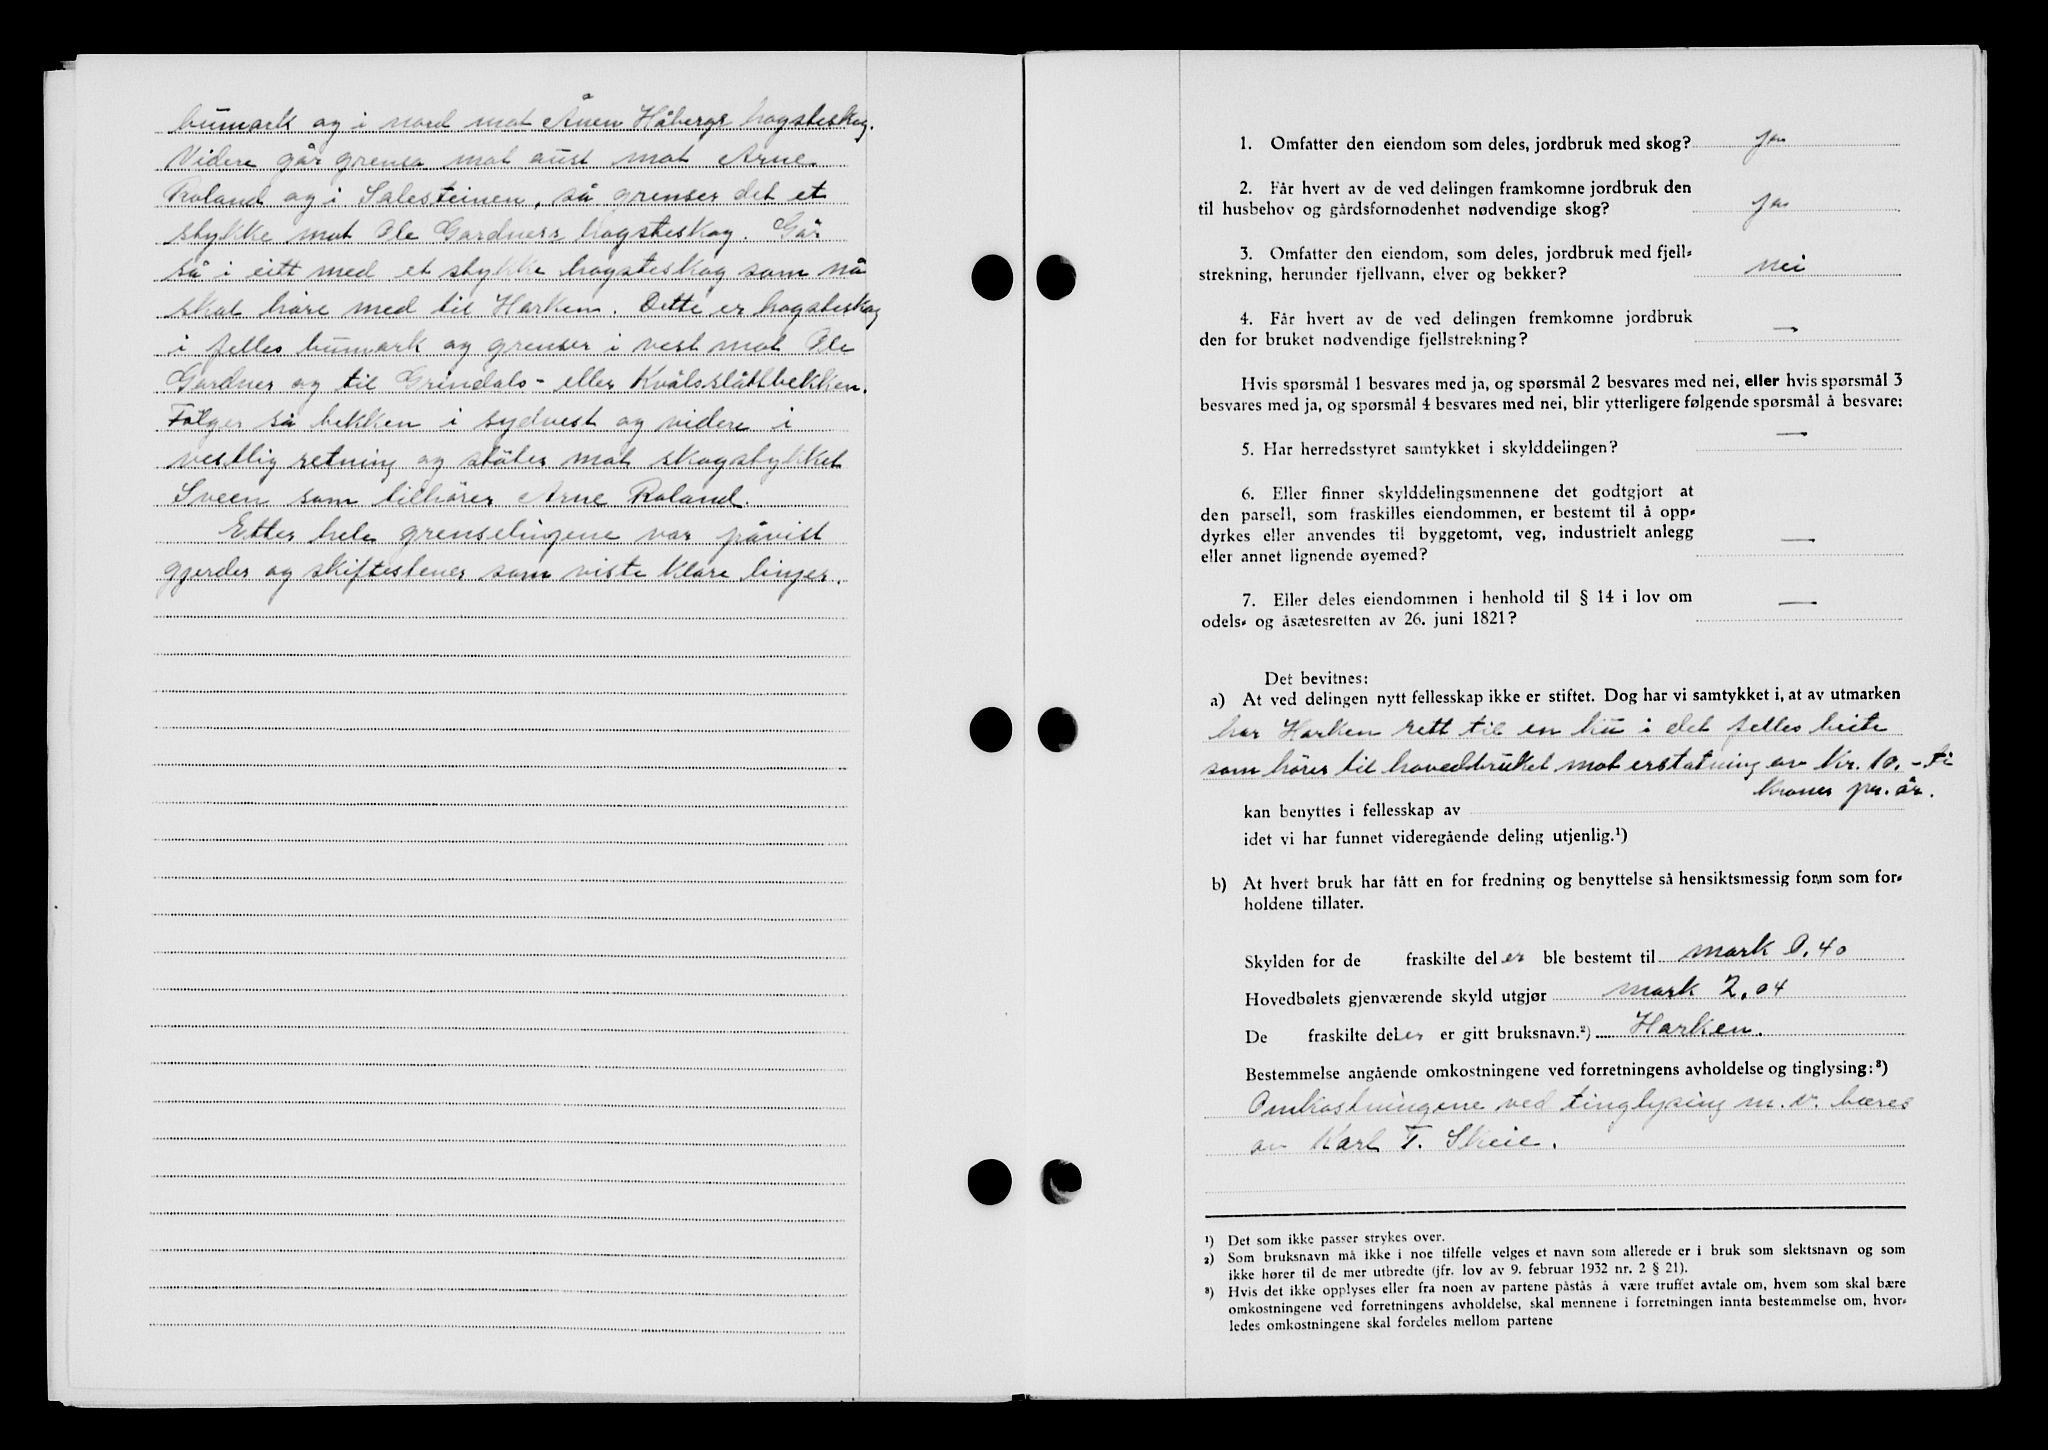 bumark og i nord mot Ånen Håbergs hogsteskog.
Videre går grensa mot aust mot Arne
Roland og i Salesteinen, så grenser det et
stykke mot Ole Gardners hogsteskog. Går
så i eitt med et stykke hogsteskog som nå
skal høre med til Harken. Dette er hogsteskog
i felles bumark og grenser i vest mot Ole
Gardner og til Grindals- eller Kvålsslåttbekken.
Følger så bekken i sydvest og videre i
vestlig retning og støter mot skogstykket
Sveen som tilhører Arne Roland.
Etter hele grenselinjene var påvist
gjerder og skiftestener som viste klare linjer.
1. Omfatter den eiendom som deles, jordbruk med skog? ja
2. Får hvert av de ved delingen framkomne jordbruk den
til husbehov og gårdsfornødenhet nødvendige skog? ja
3. Omfatter den eiendom, som deles, jordbruk med fjell-
strekning, herunder fjellvann, elver og bekker? nei
4. Får hvert av de ved delingen fremkomne jordbruk
den for bruket nødvendige fjellstrekning? —
Hvis spørsmål 1 besvares med ja, og spørsmål 2 besvares med nei, eller hvis spørsmål 3
besvares med ja, og spørsmål 4 besvares med nei, blir ytterligere følgende spørsmål å besvare:
5. Har herredsstyret samtykket i skylddelingen? —
6. Eller finner skylddelingsmennene det godtgjort at
den parsell, som fraskilles eiendommen, er bestemt til å opp-
dyrkes eller anvendes til byggetomt, veg, industrielt anlegg
eller annet lignende øyemed? —
7. Eller deles eiendommen i henhold til § 14 i lov om
odels- og åsætesretten av 26. juni 1821? —
Det bevitnes:
a) At ved delingen nytt fellesskap ikke er stiftet. Dog har vi samtykket i, at av utmarken
har Harken rett til en ku i det felles beite
som hører til hovedbruket mot erstatning av kr. 10.- ti
kroner pr. år.
kan benyttes i fellesskap av
idet vi har funnet videregående deling utjenlig.¹)
b) At hvert bruk har fått en for fredning og benyttelse så hensiktsmessig form som for-
holdene tillater.
Skylden for de fraskilte deler ble bestemt til mark 0,40
Hovedbølets gjenværende skyld utgjør mark 2,04
De fraskilte deler er gitt bruksnavn.²) Harken.
Bestemmelse angående omkostningene ved forretningens avholdelse og tinglysing:³)
Omkostningene ved tinglysing m. v. bæres
av Karl T. Skeie.
¹) Det som ikke passer strykes over.
²) Som bruksnavn må ikke i noe tilfelle velges et navn som allerede er i bruk som slektsnavn og som
ikke hører til de mer utbredte (jfr. lov av 9. februar 1932 nr. 2 § 21).
³) Hvis det ikke opplyses eller fra noen av partene påstås å være truffet avtale om, hvem som skal bære
omkostningene ved forretningens avholdelse, skal mennene i forretningen innta bestemmelse om, hvor-
ledes omkostningene skal fordeles mellom partene